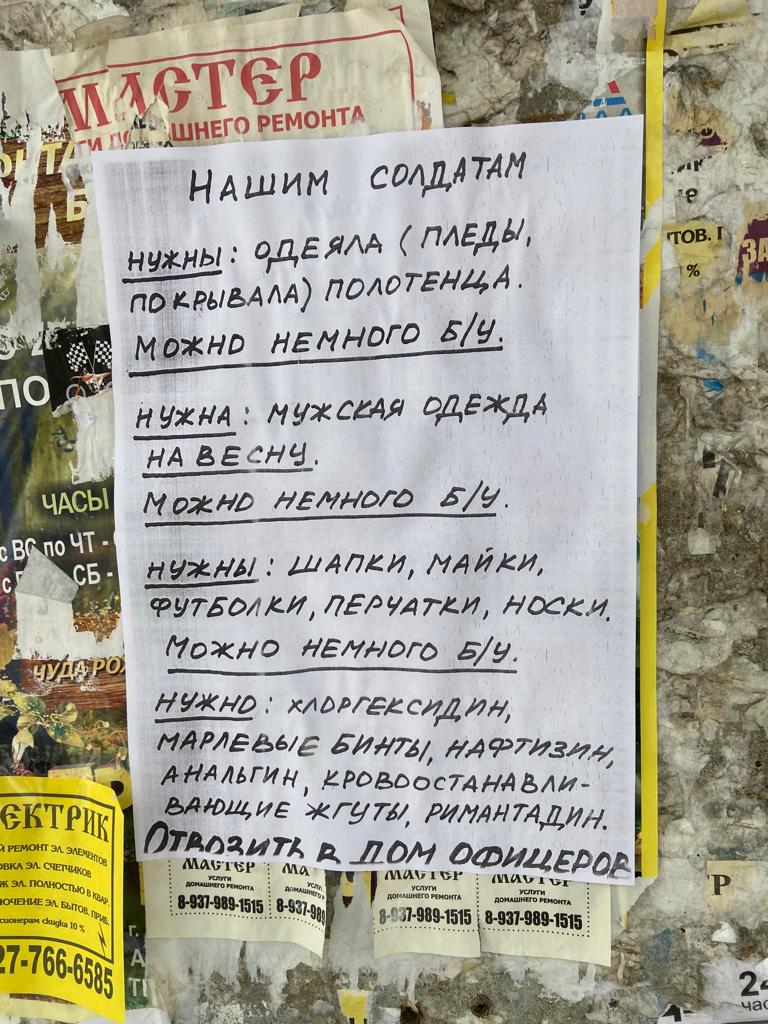 МАСТЕР
АШНЕГО РЕМОНТА
НАШИМ СОЛДАТАМ
НУЖНЫ: ОДЕЯЛА (ПЛЕДЫ,
ПОКРЫВАЛА) ПОЛОТЕНЦА.
МОЖНО НЕМНОГО Б/У.
НУЖНА: МУЖСКАЯ ОДЕЖДА
НА ВЕСНУ.
МОЖНО НЕМНОГО Б/У.
НУЖНЫ: ШАПКИ, МАЙКИ,
ФУТБОЛКИ, ПЕРЧАТКИ, НОСКИ.
МОЖНО НЕМНОГО Б/У.
НУЖНО: ХЛОРГЕКСИДИН,
МАРЛЕВЫЕ БИНТЫ, НАФТИЗИН,
АНАЛЬГИН, КРОВООСТАНАВЛИ-
ВАЮЩИЕ ЖГУТЫ, РИМАНТАДИН.
ОТВОЗИТЬ В ДОМ ОФИЦЕРОВ
ПО
ЧАСЫ
с ВС по ЧТ -
СБ -
ЧУДА РО
ТОВ. I
%
ЗА
ЕКТРИК
Й РЕМОНТ ЭЛ. ЭЛЕМЕНТОВ
ОВКА ЭЛ. СЧЕТЧИКОВ
Ж ЭЛ. ПОЛНОСТЬЮ В КВАР.
ЛЮЧЕНИЕ ЭЛ. БЫТОВ. ПРИБ.
сионерам скидка 10 %
27-766-6585
МАСТЕР
УСЛУГИ
ДОМАШНЕГО РЕМОНТА
8-937-989-1515
МАС
ДОМАШН
8-937-989
МАСТЕР
УСЛУГИ
ДОМАШНЕГО РЕМОНТА
8-937-989-1515
МАСТЕР
УСЛУГИ
ДОМАШНЕГО РЕМОНТА
8-937-989-1515
Р
24
час